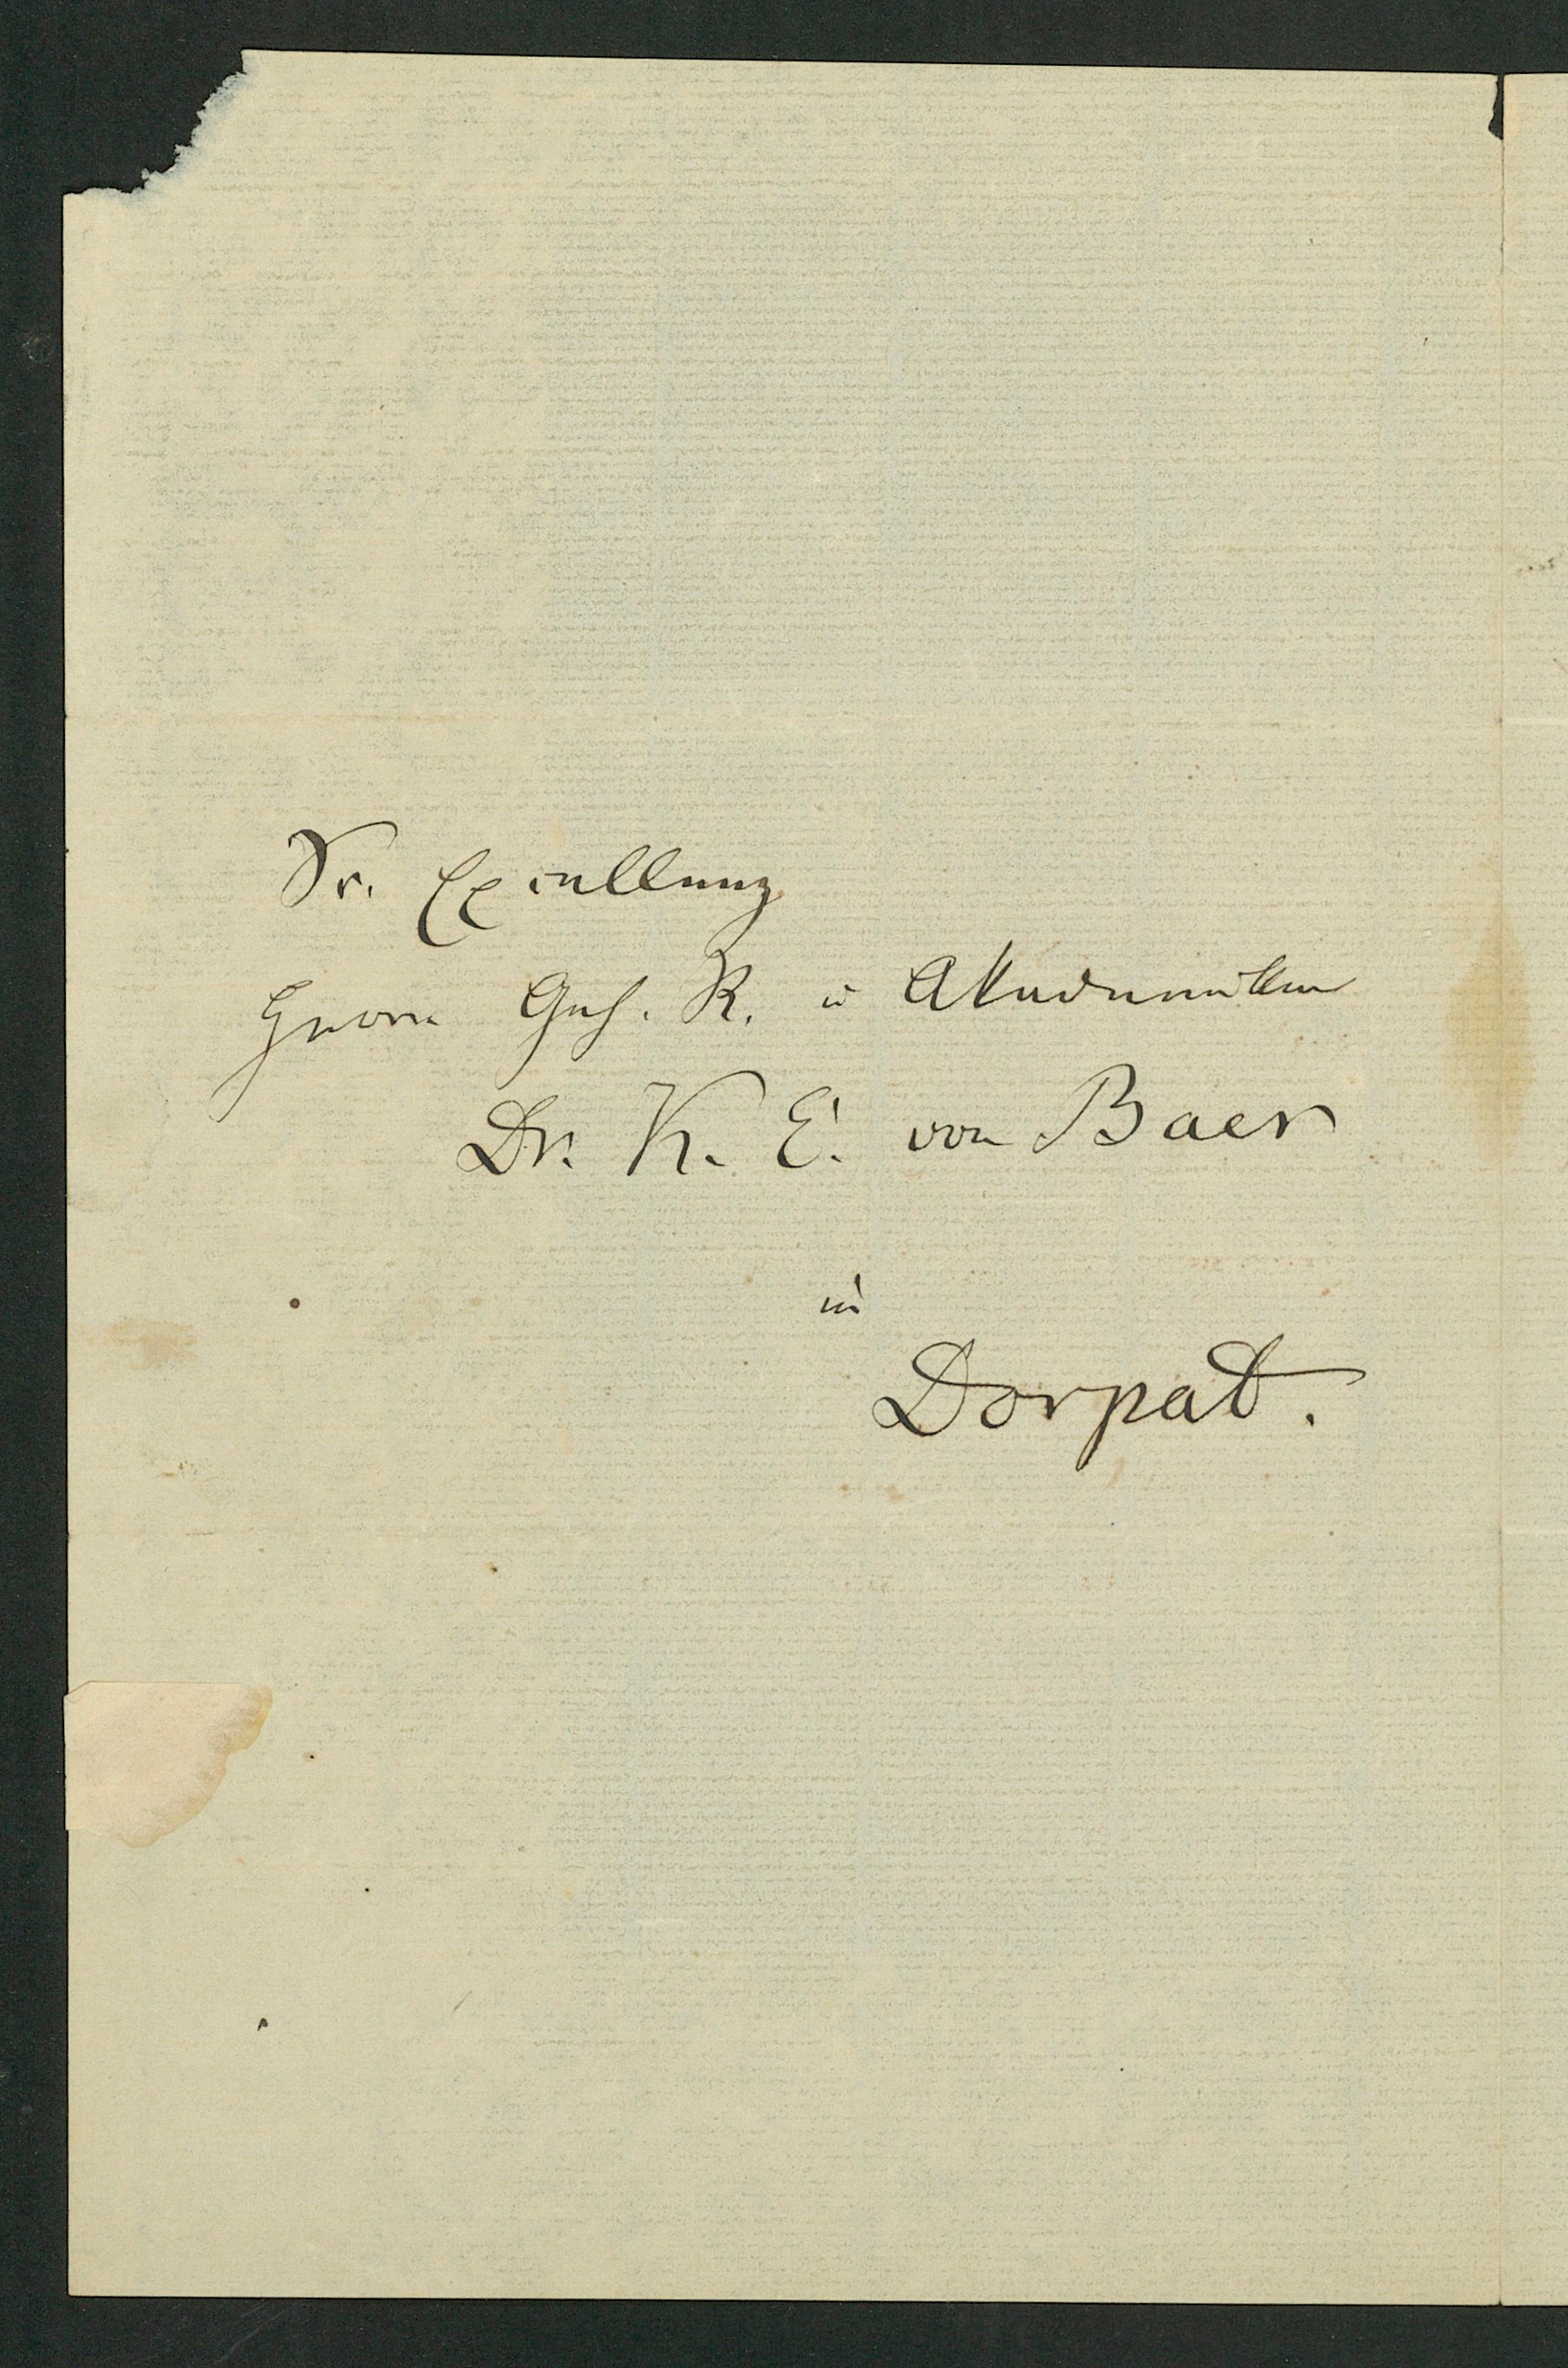 Sr. Excellenz
Herrn Geh. R. u Akademiker
Dr. K. E. von Baer
in
Dorpat.